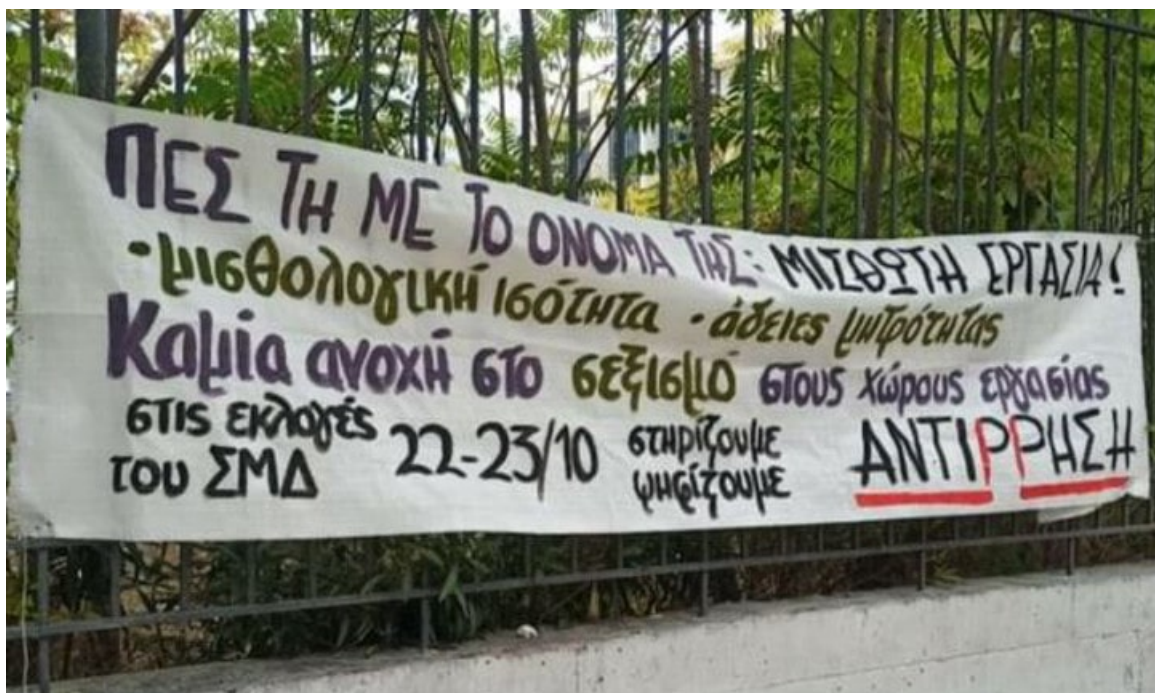 ΠΕΣ ΤΗ ΜΕ ΤΟ ΟΝΟΜΑ ΤΗΣ: ΜΙΣΘΩΤΗ ΕΡΓΑΣΙΑ!
· μισθολογική ισότητα · άδειες μητρότητας
Καμία ανοχή στο σεξισμό στους χώρους εργασίας
στις εκλογές του ΣΜΔ 22-23/10 στηρίζουμε ψηφίζουμε ΑΝΤΙΡΡΗΣΗ